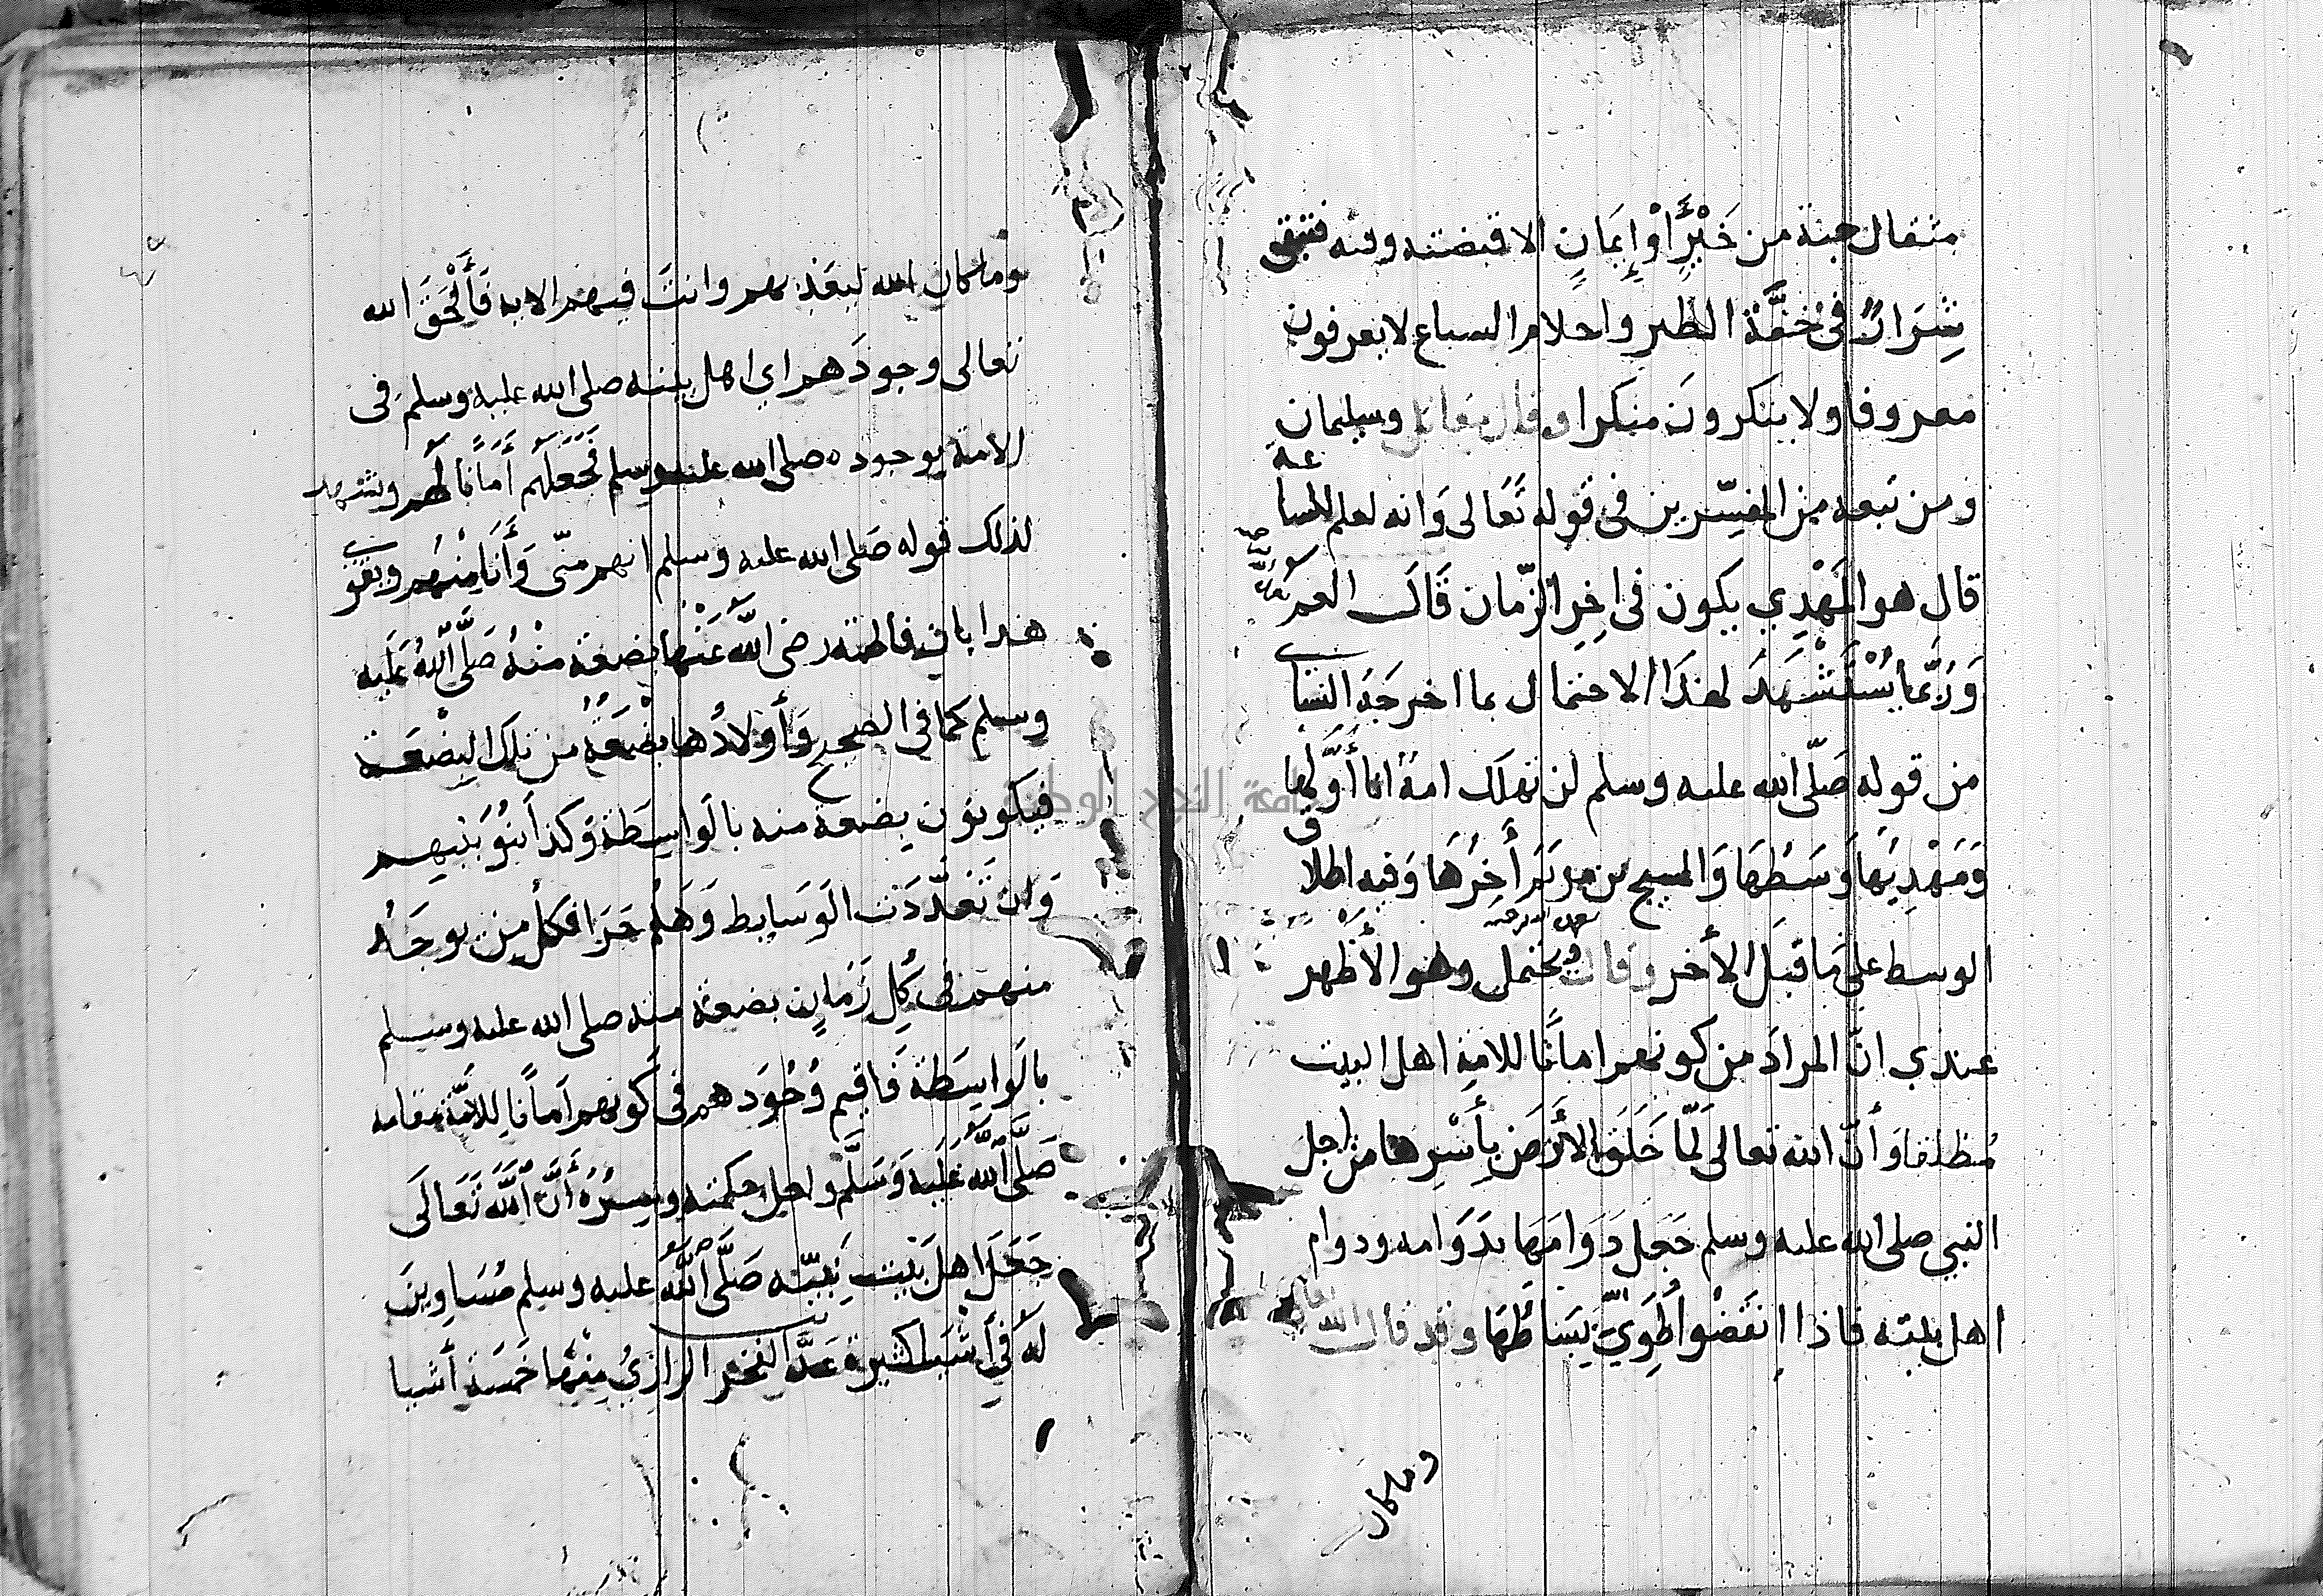 مثقال حبة من خَيْرٍ أَوْ إِيمَانٍ الا قبضته وفيه فتبقى
شِرَارٌ فى خفَّة الطير واحلام السباع لا يعرفون
معروفا ولا ينكرونَ منكرا وقال مقاتل وسليمان
ومن تبعه من المفسّرين فى قوله تَعَالى وَانه لعلم للساعة
قال هو المَهْدِي يكون فى اخِرِ الزّمان قَالَ العم
وَرُبَّمَا يُسْتَشْهَدَ لهذَا الاحتمال بما اخرجَهُ النسا
من قوله صَلّى الله عليه وسلم لن تهلك امةٌ انا أَوَّلُها
وَمَهْدِيّهَا وَسَطُهَا وَالمسيح بن مريَمَ أَخِرُهَا وَفيه اطلاق
الوسط على مَا قبَل الأخر وقال ويحتمل وهو الأظهر
عندي انّ المرادَ من كونهم امانًا للامةِ اهل البيت
مُطلقا وَأنّ الله تعالىَ لَمّا خَلَقَ الأرَضَ بِأَسْرِها من اجل
النبي صلى الله عليه وسلم جَعَلَ دَوَامَهَا بدَوَامه ودوام
اهل بيته فاذا انقَضُوْا طُوِيَ بِسَاطُهَا وقد قال الله
وماكان
وماكان الله ليعَذبهم وانتَ فيهم الايه فَأَلْحَقَ الله
تعالى وجودَهم اي اهل بيته صلى الله عليه وسلم فى
الامة بوجوده صلى الله عليه وسلم فَجَعَلَهُم أَمَانًا لَهُم ويشهد
لذلك قوله صَلى الله عليه وسلم انهم مِنّى وَأَنَا مِنْهُم ويقوى
هذا بان فاطمة رضى اللَّه عَنْهَا بضعة مِنْهُ صَلَّى اللَّهُ عَلَيه
وسلم كما فى الصحيح وَأَوْلَادُهَا بضْعَةٌ من تلكَ البِضْعَة
فيكونون بضعة منه بالوَاسِطَة وَكذا بَنُو بَنِيهِم
وَان تَعَدّدَت الوَسَايط وَهَلُمَ جَرَا فكل من يوجَدُ
منهم فى كُلِ زَمَانٍ بضعة منه صلى الله عليه وسلم
بالوَاسِطَة فَاقيم وُجُوَدهم فى كَونهم اَمانًا للامّة مقامه
صَلَّى اللَّهُ عَلَيه وَسَلَّم ولعل حكمته وَسِرّهُ أَنَّ اللَّهَ تَعَالَى
جَعَلَ اهلَ بَيْتِ نَبِيّه صَلَّى اللَّهُ عليه وسلم مُسَاوِينَ
لَهُ فِي أَشْيَا كثيرة عَدَّ الفخر الرازيُ مِنْهَا خَمسَة أشيا